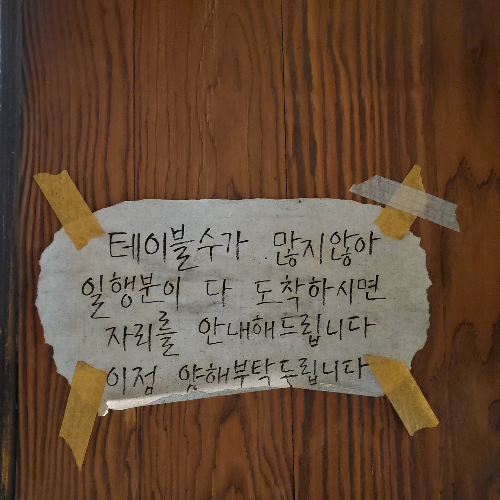 테이블수가 많지않아
일행분이 다 도착하시면
자리를 안내해드립니다
이점 양해부탁드립니다